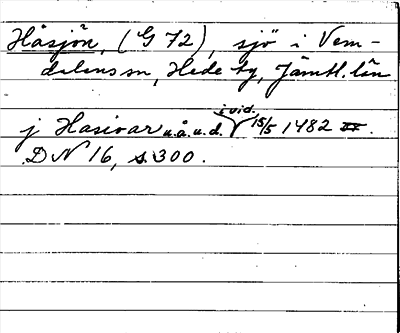 Håsjön, (G 72), sjö i Vem-
dalens sn, Hede tg, Jämtl. län
i vid.
j Hasioar u.å.u.d. 15/5 1482
DN 16, s. 300.